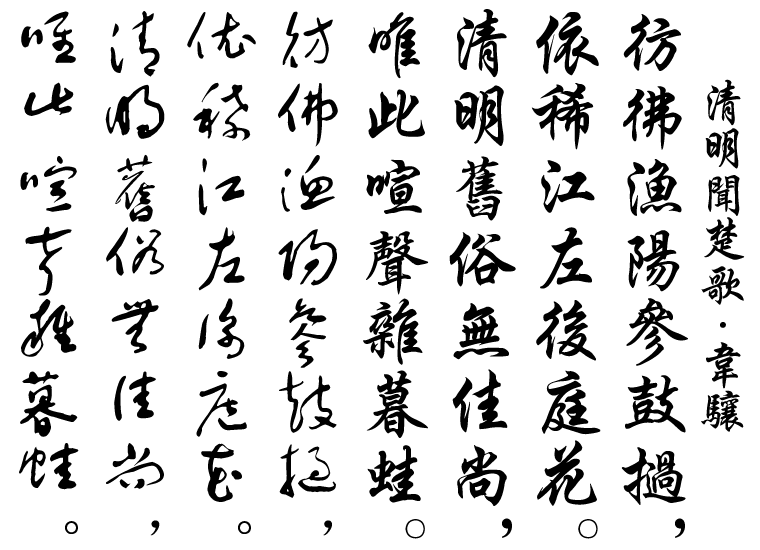 清明聞楚歌·韋驤
彷彿漁陽參鼓撾，
依稀江左後庭花。
清明舊俗無佳尚，
唯此喧聲雜暮蛙。
彷彿漁陽參鼓撾，
依稀江左後庭花。
清明舊俗無佳尚，
唯此喧聲雜暮蛙。